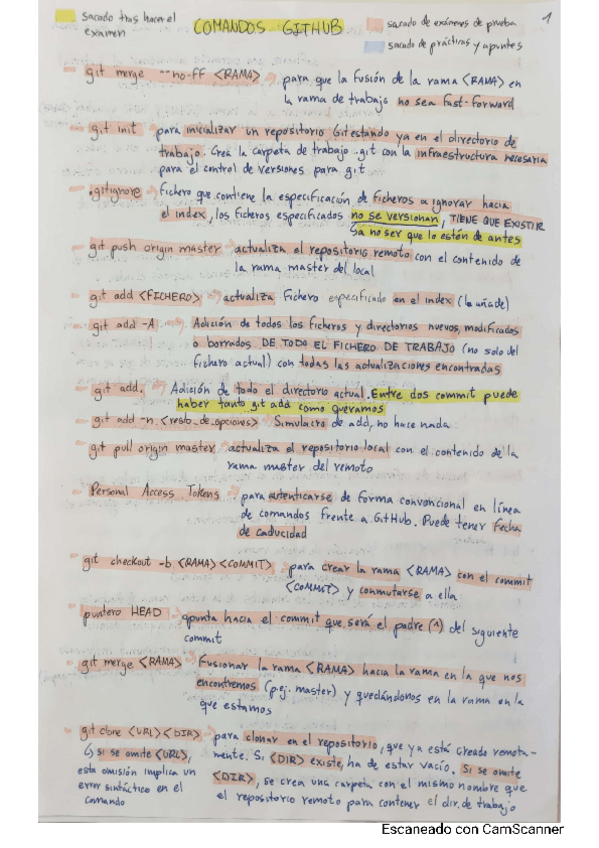 sacado tras hacer el
examen
COMANDOS GITHUB
sacado de exámenes de prueba
sacado de prácticas y apuntes
1
- git merge --no-ff <RAMA> → para que la fusión de la rama <RAMA> en
la rama de trabajo no sea fast-forward
- git init → para inicializar un repositorio Git estando ya en el directorio de
trabajo. Crea la carpeta de trabajo .git con la infraestructura necesaria
para el control de versiones para git
- .gitignore → Fichero que contiene la especificación de ficheros a ignorar hacia
el index, los ficheros especificados no se versionan, TIENE QUE EXISTIR
↳ a no ser que lo estén de antes
- git push origin master → actualiza el repositorio remoto con el contenido de
la rama master del local
- git add <FICHERO> → actualiza Fichero especificado en el index (lo añade)
- git add -A → Adición de todos los ficheros y directorios nuevos, modificados
o borrados DE TODO EL FICHERO DE TRABAJO (no solo del
fichero actual) con todas las actualizaciones encontradas
- git add. → Adición de todo el directorio actual. Entre dos commit puede
haber tanto git add como queramos
- git add -n <resto_de_opciones> → Simulacro de add, no hace nada
- git pull origin master → actualiza el repositorio local con el contenido de la
rama master del remoto
- Personal Access Tokens → para autenticarse de forma convencional en línea
de comandos frente a GitHub. Puede tener fecha
de caducidad
- git checkout -b <RAMA><COMMIT> → para crear la rama <RAMA> con el commit
<COMMIT> y conmutarse a ella
- puntero HEAD → apunta hacia el commit que será el padre (1) del siguiente
commit
- git merge <RAMA> → Fusionar la rama <RAMA> hacia la rama en la que nos
encontremos (p.ej. master) y quedándonos en la rama en la
que estamos
- git clone <URL><DIR> → para clonar en el repositorio, que ya está creado remota-
↳ si se omite <URL>, mente. Si <DIR> existe, ha de estar vacío. Si se omite
esta omisión implica un <DIR>, se crea una carpeta con el mismo nombre que
error sintáctico en el el repositorio remoto para contener el dir. de trabajo
comando
Escaneado con CamScanner